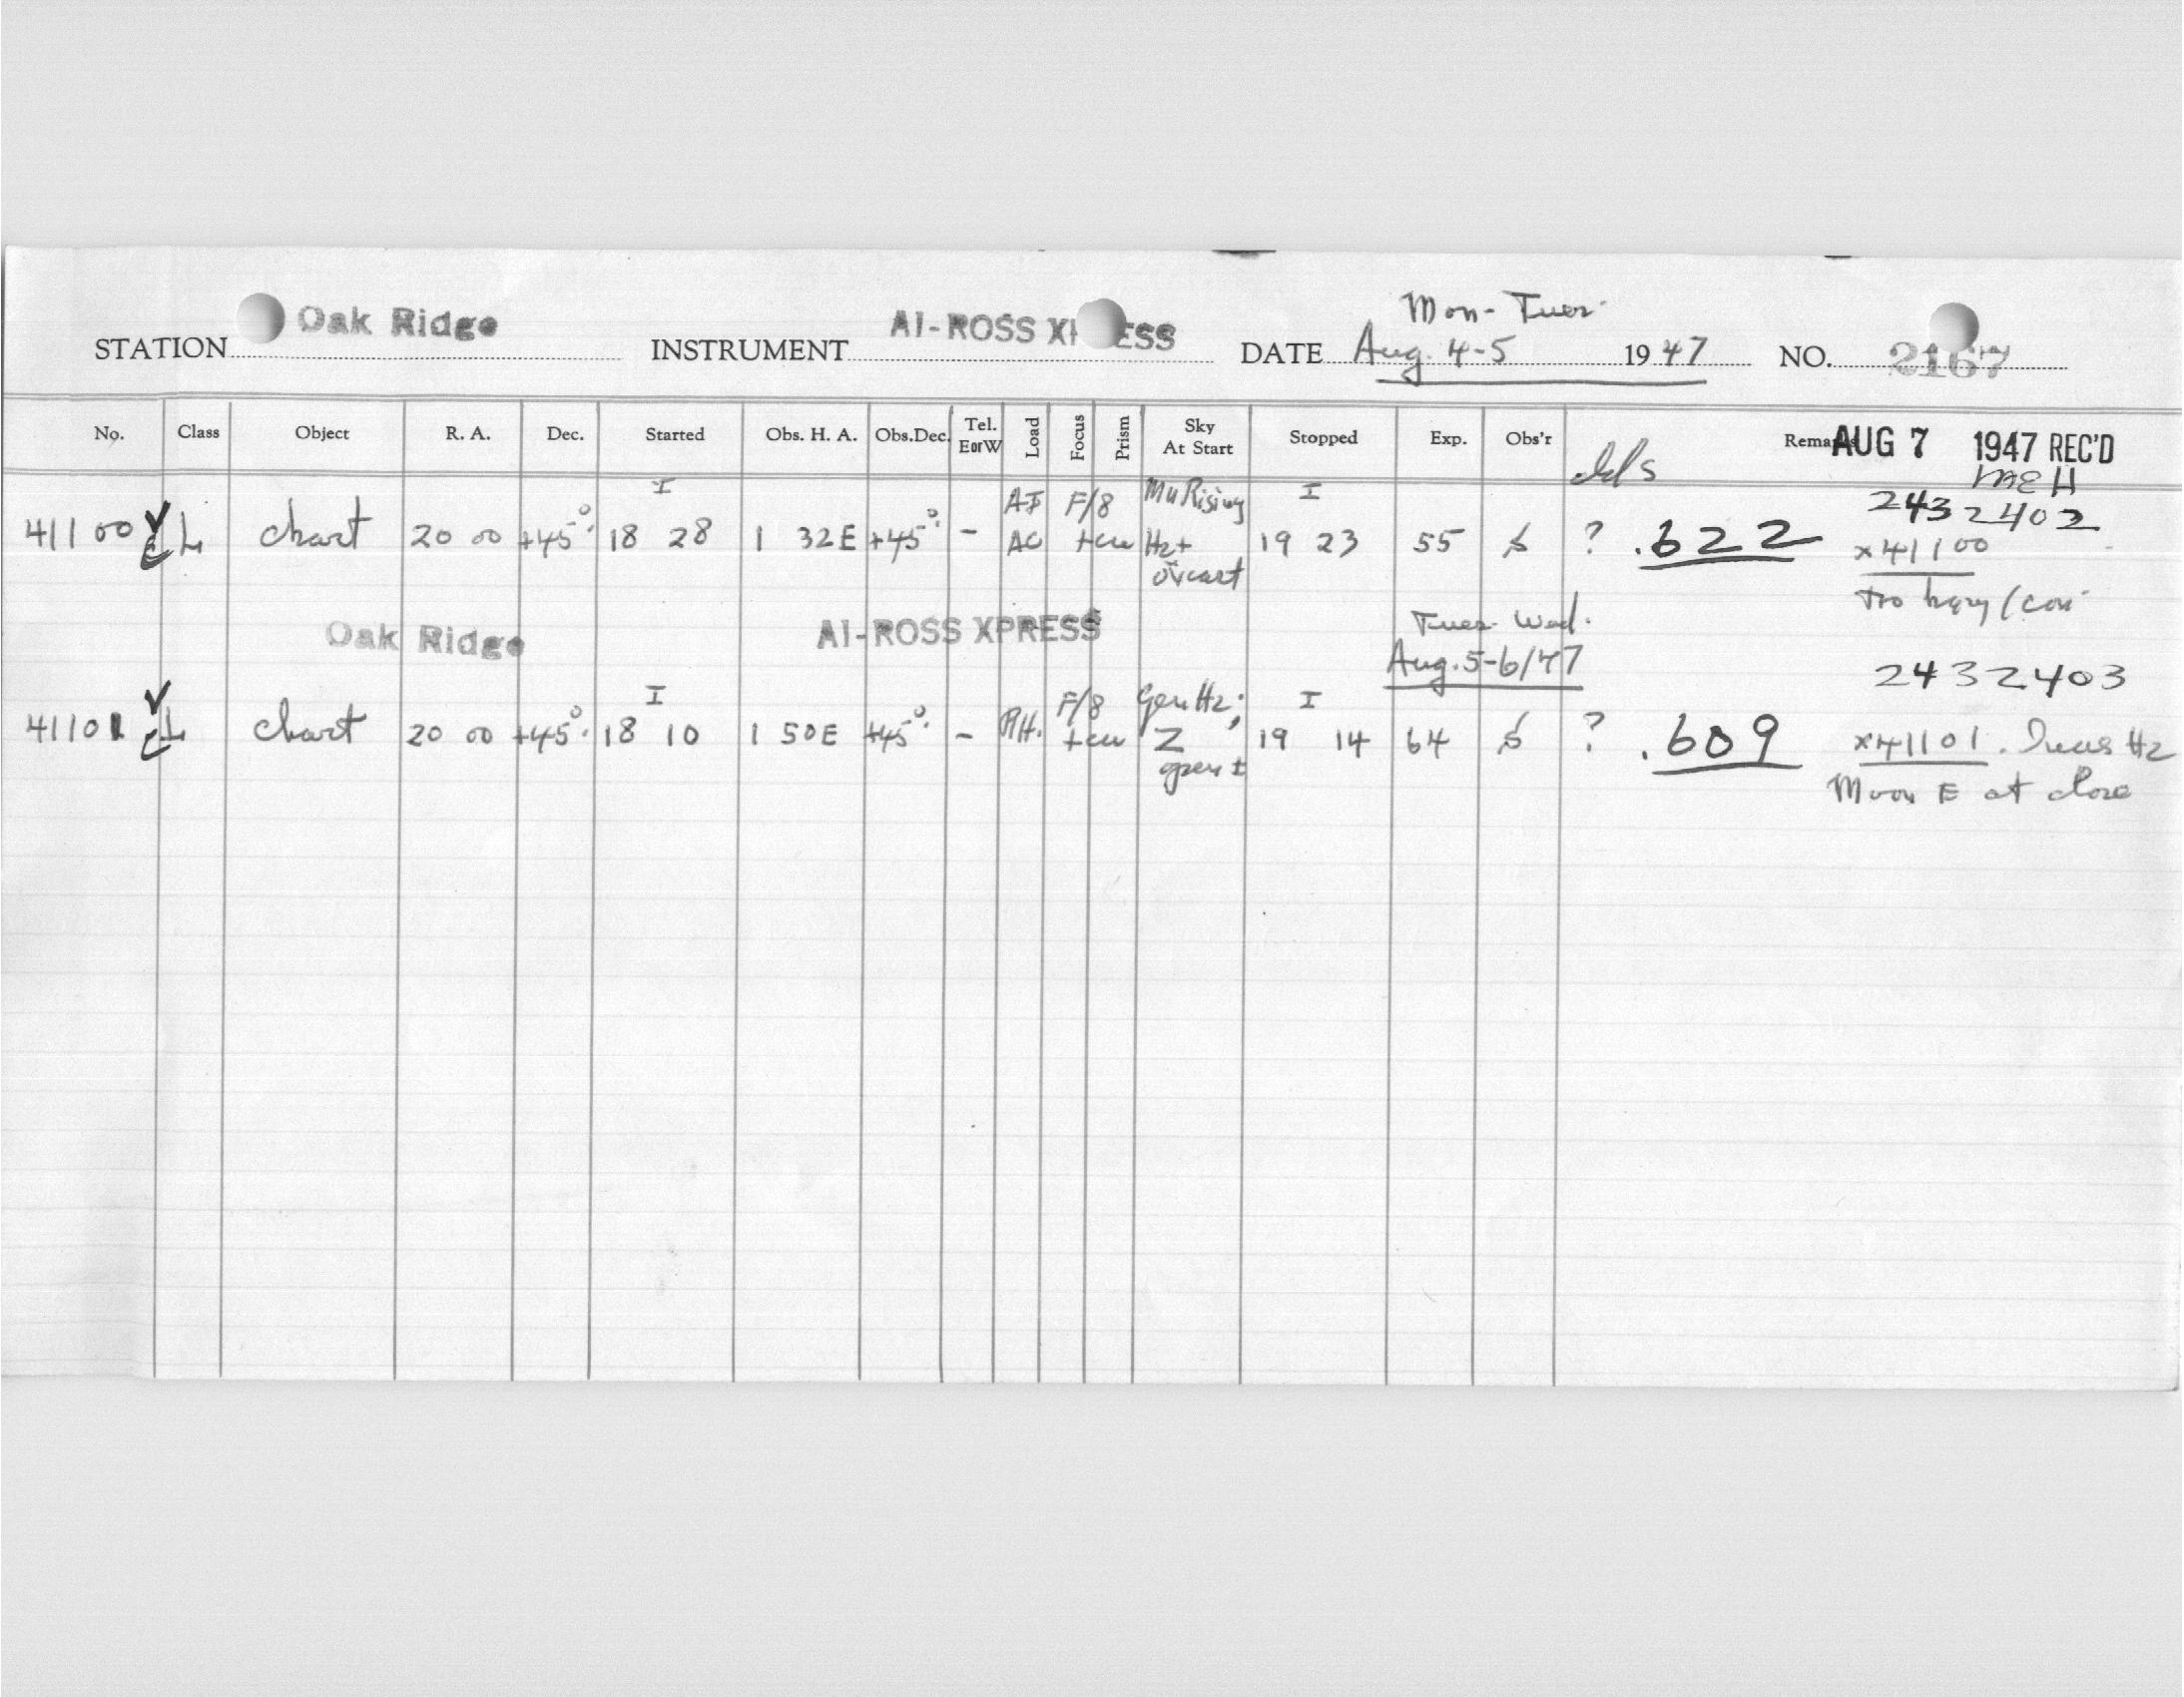 Mon - Tues.
STATION Oak Ridge INSTRUMENT AI-ROSS XPRESS DATE Aug. 4-5 1947 NO. 2167
No. Class Object R. A. Dec. Started Obs. H. A. Obs.Dec. Tel. EorW Load Focus Prism Sky At Start Stopped Exp. Obs'r Remarks AUG 7 1947 REC'D
MEH
I F/8 Mn Rising I 2432402
41100 L chart 20 00 +45° 18 28 1 32E +45° - Hz+ 19 23 55 ? .622 x41100
ovcast
Oak Ridge AI-ROSS XPRESS Tues - Wed.
Aug. 5-6/47
2432403
I F/8 Gen Hz; I
41101 L chart 20 00 +45° 18 10 1 50E +45° - RH. Z 19 14 64 ? .609 x41101. Hz
open ± Moon E at close